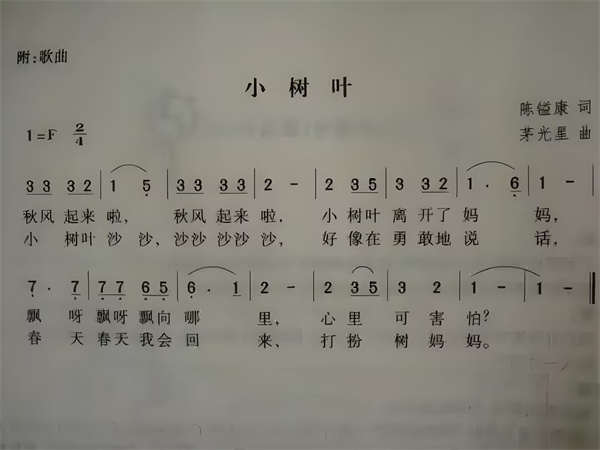 附:歌曲
小树叶
陈镒康 词
1=F 2/4
茅光里 曲
33 32 | 1 5 | 33 33 | 2 - | 2 35 | 3 32 | 1 . 6 |
秋风 起来 啦, 秋风 起来 啦, 小树叶 离 开了 妈 妈,
小 树叶 沙沙, 沙沙沙沙 沙, 好 像在 勇 敢地 说 话,
7 . 7 | 77 65 | 6 . 1 | 2 - | 2 35 | 3 2 | 1 - | 1 - |
飘 呀 飘呀 飘向 哪 里, 心里 可 害 怕?
春 天 春天 我会 回 来, 打扮 树 妈 妈。